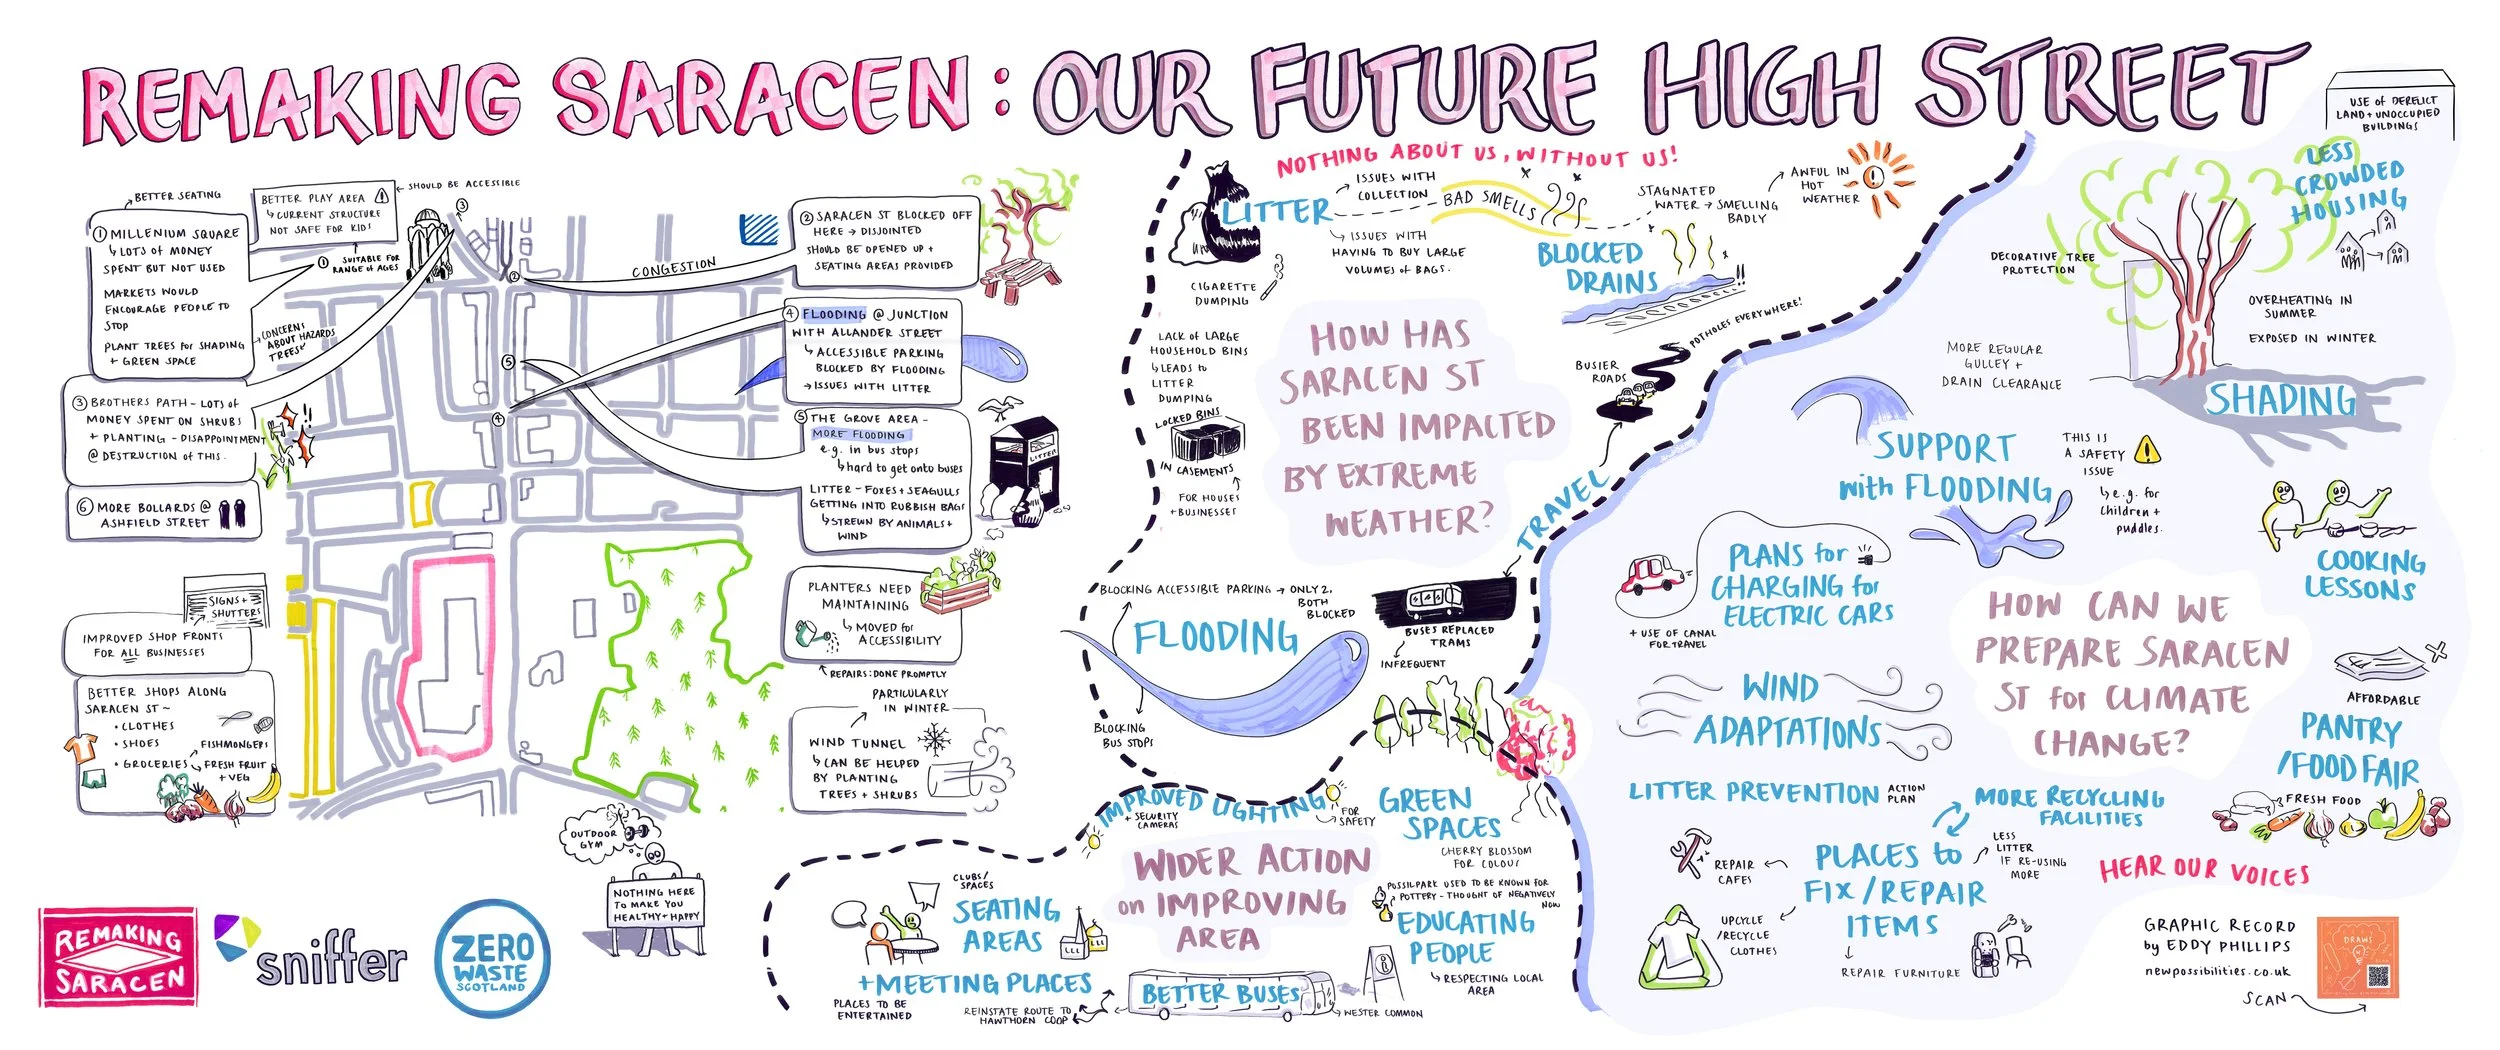 REMAKING SARACEN: OUR FUTURE HIGH STREET
BETTER SEATING
BETTER PLAY AREA
↳ CURRENT STRUCTURE
NOT SAFE FOR KIDS
← SHOULD BE ACCESSIBLE
SUITABLE FOR
RANGE OF AGES
① MILLENIUM SQUARE
↳ LOTS OF MONEY
SPENT BUT NOT USED
MARKETS WOULD
ENCOURAGE PEOPLE TO
STOP
PLANT TREES for SHADING
+ GREEN SPACE
CONCERNS
ABOUT HAZARDS
TREES
③ BROTHERS PATH - LOTS OF
MONEY SPENT ON SHRUBS
+ PLANTING - DISAPPOINTMENT
@ DESTRUCTION OF THIS.
⑥ MORE BOLLARDS @
ASHFIELD STREET
SIGNS +
SHUTTERS
IMPROVED SHOP FRONTS
FOR ALL BUSINESSES
BETTER SHOPS ALONG
SARACEN ST ~
• CLOTHES
• SHOES
• GROCERIES
FISHMONGERS
FRESH FRUIT
+ VEG
①
③
②
⑤
④
CONGESTION
② SARACEN ST BLOCKED OFF
HERE → DISJOINTED
SHOULD BE OPENED UP +
SEATING AREAS PROVIDED
④ FLOODING @ JUNCTION
WITH ALLANDER STREET
↳ ACCESSIBLE PARKING
BLOCKED BY FLOODING
→ ISSUES WITH LITTER
⑤ THE GROVE AREA -
MORE FLOODING
e.g. in bus stops
↳ hard to get onto buses
LITTER - FOXES + SEAGULLS
GETTING INTO RUBBISH BAGS
↳ STREWN BY ANIMALS +
WIND
LITTER
PLANTERS NEED
MAINTAINING
↳ MOVED for
ACCESSIBILITY
REPAIRS: DONE PROMPTLY
PARTICULARLY
IN WINTER
WIND TUNNEL
↳ CAN BE HELPED
BY PLANTING
TREES + SHRUBS
OUTDOOR
GYM
NOTHING HERE
TO MAKE YOU
HEALTHY + HAPPY
REMAKING
SARACEN
sniffer
ZERO
WASTE
SCOTLAND
NOTHING ABOUT US, WITHOUT US!
LITTER
ISSUES WITH
COLLECTION
BAD SMELLS
ISSUES WITH
HAVING TO BUY LARGE
VOLUMES of BAGS.
CIGARETTE
DUMPING
STAGNATED
WATER → SMELLING
BADLY
AWFUL IN
HOT
WEATHER
BLOCKED
DRAINS
LACK OF LARGE
HOUSEHOLD BINS
↳ LEADS to
LITTER
DUMPING
LOCKED BINS
IN CASEMENTS
FOR HOUSES
+ BUSINESSES
HOW HAS
SARACEN ST
BEEN IMPACTED
BY EXTREME
WEATHER?
POTHOLES EVERYWHERE!
BUSIER
ROADS
TRAVEL
BUSES REPLACED
TRAMS
INFREQUENT
BLOCKING ACCESSIBLE PARKING → ONLY 2,
BOTH
BLOCKED
FLOODING
BLOCKING
BUS STOPS
IMPROVED LIGHTING
+ SECURITY
CAMERAS
FOR
SAFETY
GREEN
SPACES
CHERRY BLOSSOM
FOR COLOUR
WIDER ACTION
on IMPROVING
AREA
CLUBS/
SPACES
SEATING
AREAS
+ MEETING PLACES
PLACES TO BE
ENTERTAINED
POSSILPARK USED TO BE KNOWN FOR
POTTERY - THOUGHT OF NEGATIVELY
NOW
EDUCATING
PEOPLE
↳ RESPECTING LOCAL
AREA
BETTER BUSES
REINSTATE ROUTE TO
HAWTHORN COOP
WESTER COMMON
USE of DERELICT
LAND + UNOCCUPIED
BUILDINGS
LESS
CROWDED
HOUSING
DECORATIVE TREE
PROTECTION
OVERHEATING IN
SUMMER
EXPOSED IN WINTER
SHADING
MORE REGULAR
GULLEY +
DRAIN CLEARANCE
SUPPORT
with FLOODING
THIS IS
A SAFETY
ISSUE
↳ e.g. for
children +
puddles.
PLANS for
CHARGING for
ELECTRIC CARS
+ USE OF CANAL
FOR TRAVEL
COOKING
LESSONS
HOW CAN WE
PREPARE SARACEN
ST for CLIMATE
CHANGE?
WIND
ADAPTATIONS
AFFORDABLE
PANTRY
/FOOD FAIR
FRESH FOOD
LITTER PREVENTION ACTION
PLAN
MORE RECYCLING
FACILITIES
LESS
LITTER
IF RE-USING
MORE
PLACES to
FIX/REPAIR
ITEMS
REPAIR
CAFES
UPCYCLE
/RECYCLE
CLOTHES
REPAIR FURNITURE
HEAR OUR VOICES
GRAPHIC RECORD
by EDDY PHILLIPS
newpossibilities.co.uk
SCAN
DRAWS